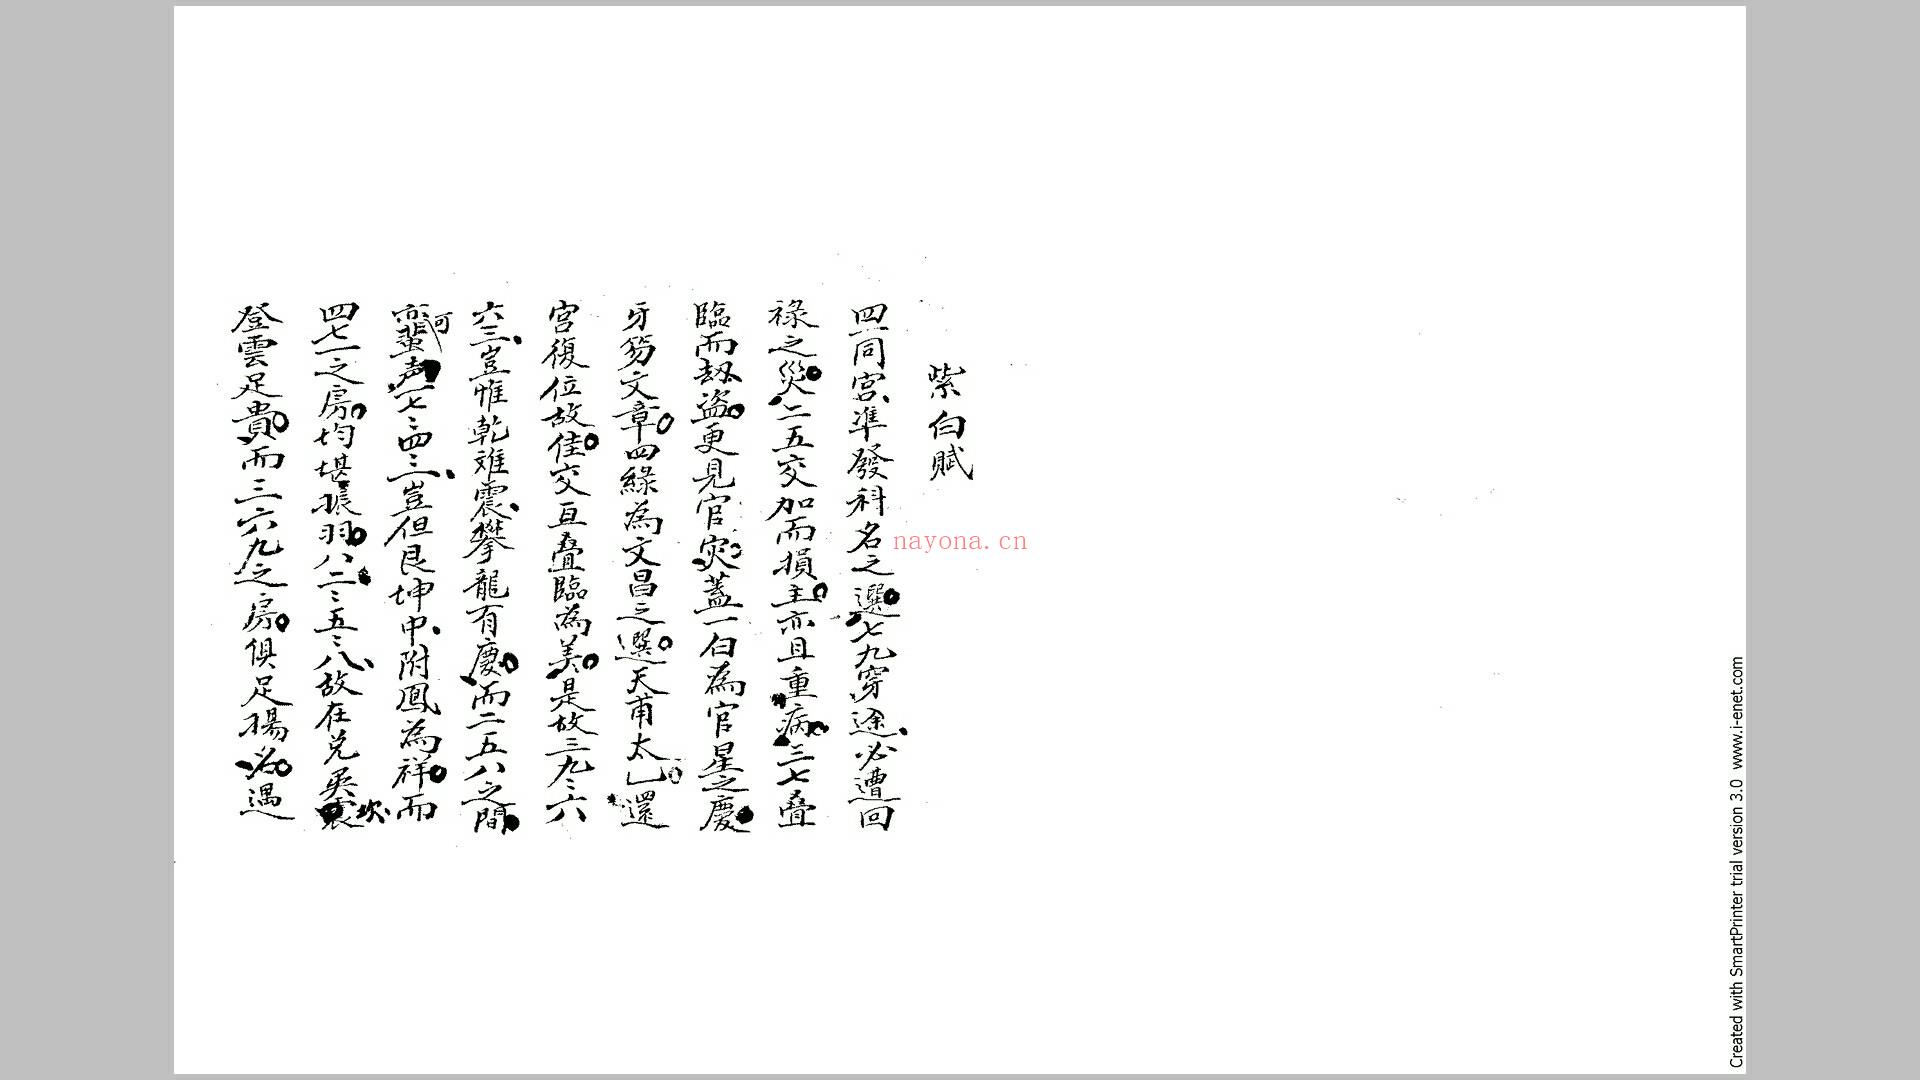 紫白賦
四一同宮、準發科名之選。七九穿途、必遭回
祿之災。二五交加而損主。亦且重病。三七叠
臨而刼盜。更見官災。蓋一白為官星之慶。
牙笏文章。四綠為文昌之選。天甫太乙。還
宮復位故佳。交亙叠臨為美。是故三九、九六、
六三、豈惟乾離震、攀龍有慶。而二五八之間。
亦可蜚声。一七、七四、四三、豈但艮坤中、附鳳為祥。而
四七一之房。均堪振羽。八二、二五、五八、故在兌巽坎、
登雲足貴。而三六九之房。俱足揚名。遇
nayona.cn
Created with SmartPrinter trial version 3.0 www.i-enet.com